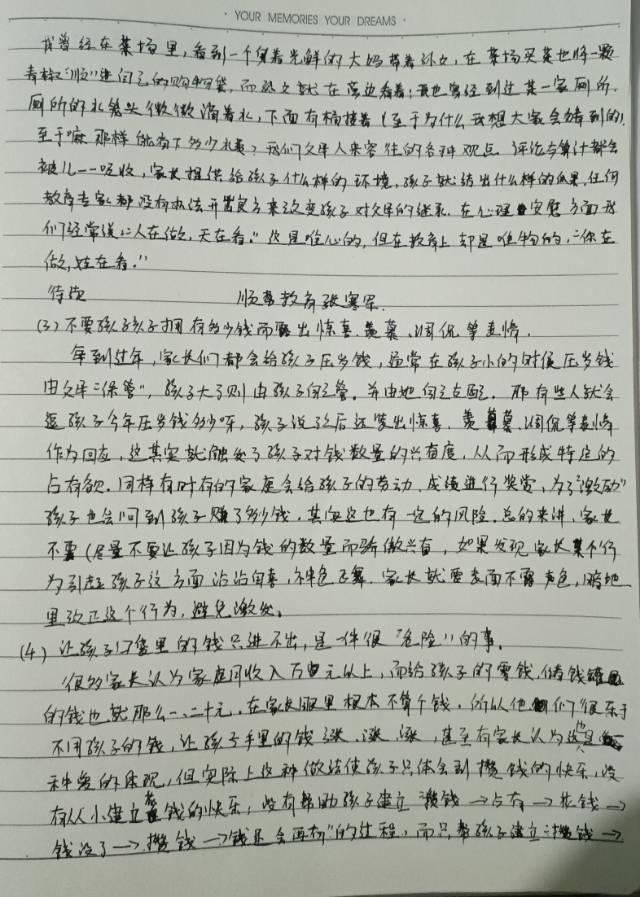 YOUR MEMORIES YOUR DREAMS
我曾经在菜场里,看到一个穿着光鲜的大妈带着孙女,在菜场买菜也将一颗
青椒"顺"进自己的购物袋,而孙女就在旁边看着;我也曾经到过某一家厕所,
厕所的水笼头微微滴着水,下面有桶接着(至于为什么我想大家会猜到的)
至于嘛 那样能省下多少水费?我们父母人来客往的各种观点 评论与算计都会
被儿一一吸收,家长提供给孩子什么样的环境,孩子就结出什么样的瓜果,任何
教育专家都没有办法开出良方来改变孩子对父母的继承。在心理 安慰方面我
们经常说"人在做,天在看。"这是唯心的,但在教育上却是唯物的,"你在
做,娃在看。"
待改 顺商教育张寒军.
(3)不要孩子孩子拥有多少钱而露出惊喜、羡慕、调侃等表情.
每到过年,家长们都会给孩子压岁钱,通常在孩子小的时候压岁钱
由父母"保管",孩子大了则由孩子自己管。并由他自己支配。那有些人就会
逗孩子今年压岁钱多少呀,孩子说了后还发出惊喜、羡慕、调侃等表情
作为回应,这其实就触发了孩子对钱数量的兴奋度,从而形成特定的
占有欲。同样有时有的家庭会给孩子的劳动、成绩进行奖赏,为了"激励"
孩子也会问到孩子赚了多少钱,其实这也有一定的风险。总的来讲,家长
不要(尽量不要让孩子因为钱的数量而骄傲兴奋,如果发现家长某个行
为引起孩子这方面沾沾自喜、神色飞舞.家长就要表面不露声色,暗地
里改正这个行为,避免激发。
(4)让孩子口袋里的钱只进不出,是一件很"危险"的事。
很多家长认为家庭月收入万元以上,而给孩子的零钱、储钱罐
的钱也就那么一、二十元,在家长眼里根本不算个钱.所以他们很乐于
不用孩子的钱,让孩子手里的钱涨、涨、涨,甚至有家长认为这是
种爱的体现,但实际上这种做法使孩子只体会到攒钱的快乐,没
有从小建立花钱的快乐,没有帮助孩子建立"攒钱→占有→花钱→
钱没了→攒钱→钱还会再有"的过程,而只帮孩子建立"攒钱→